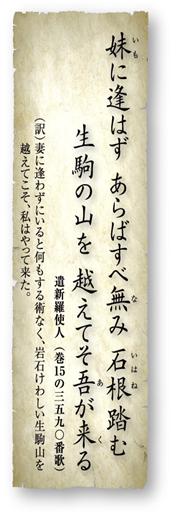 妹に逢はず あらばすべ無み 石根踏む
生駒の山を 越えてそ吾が来る
遣新羅使人 (巻15の三五九〇番歌)
(訳)妻に逢わずにいると何もする術なく、岩石けわしい生駒山を
越えてこそ、私はやって来た。